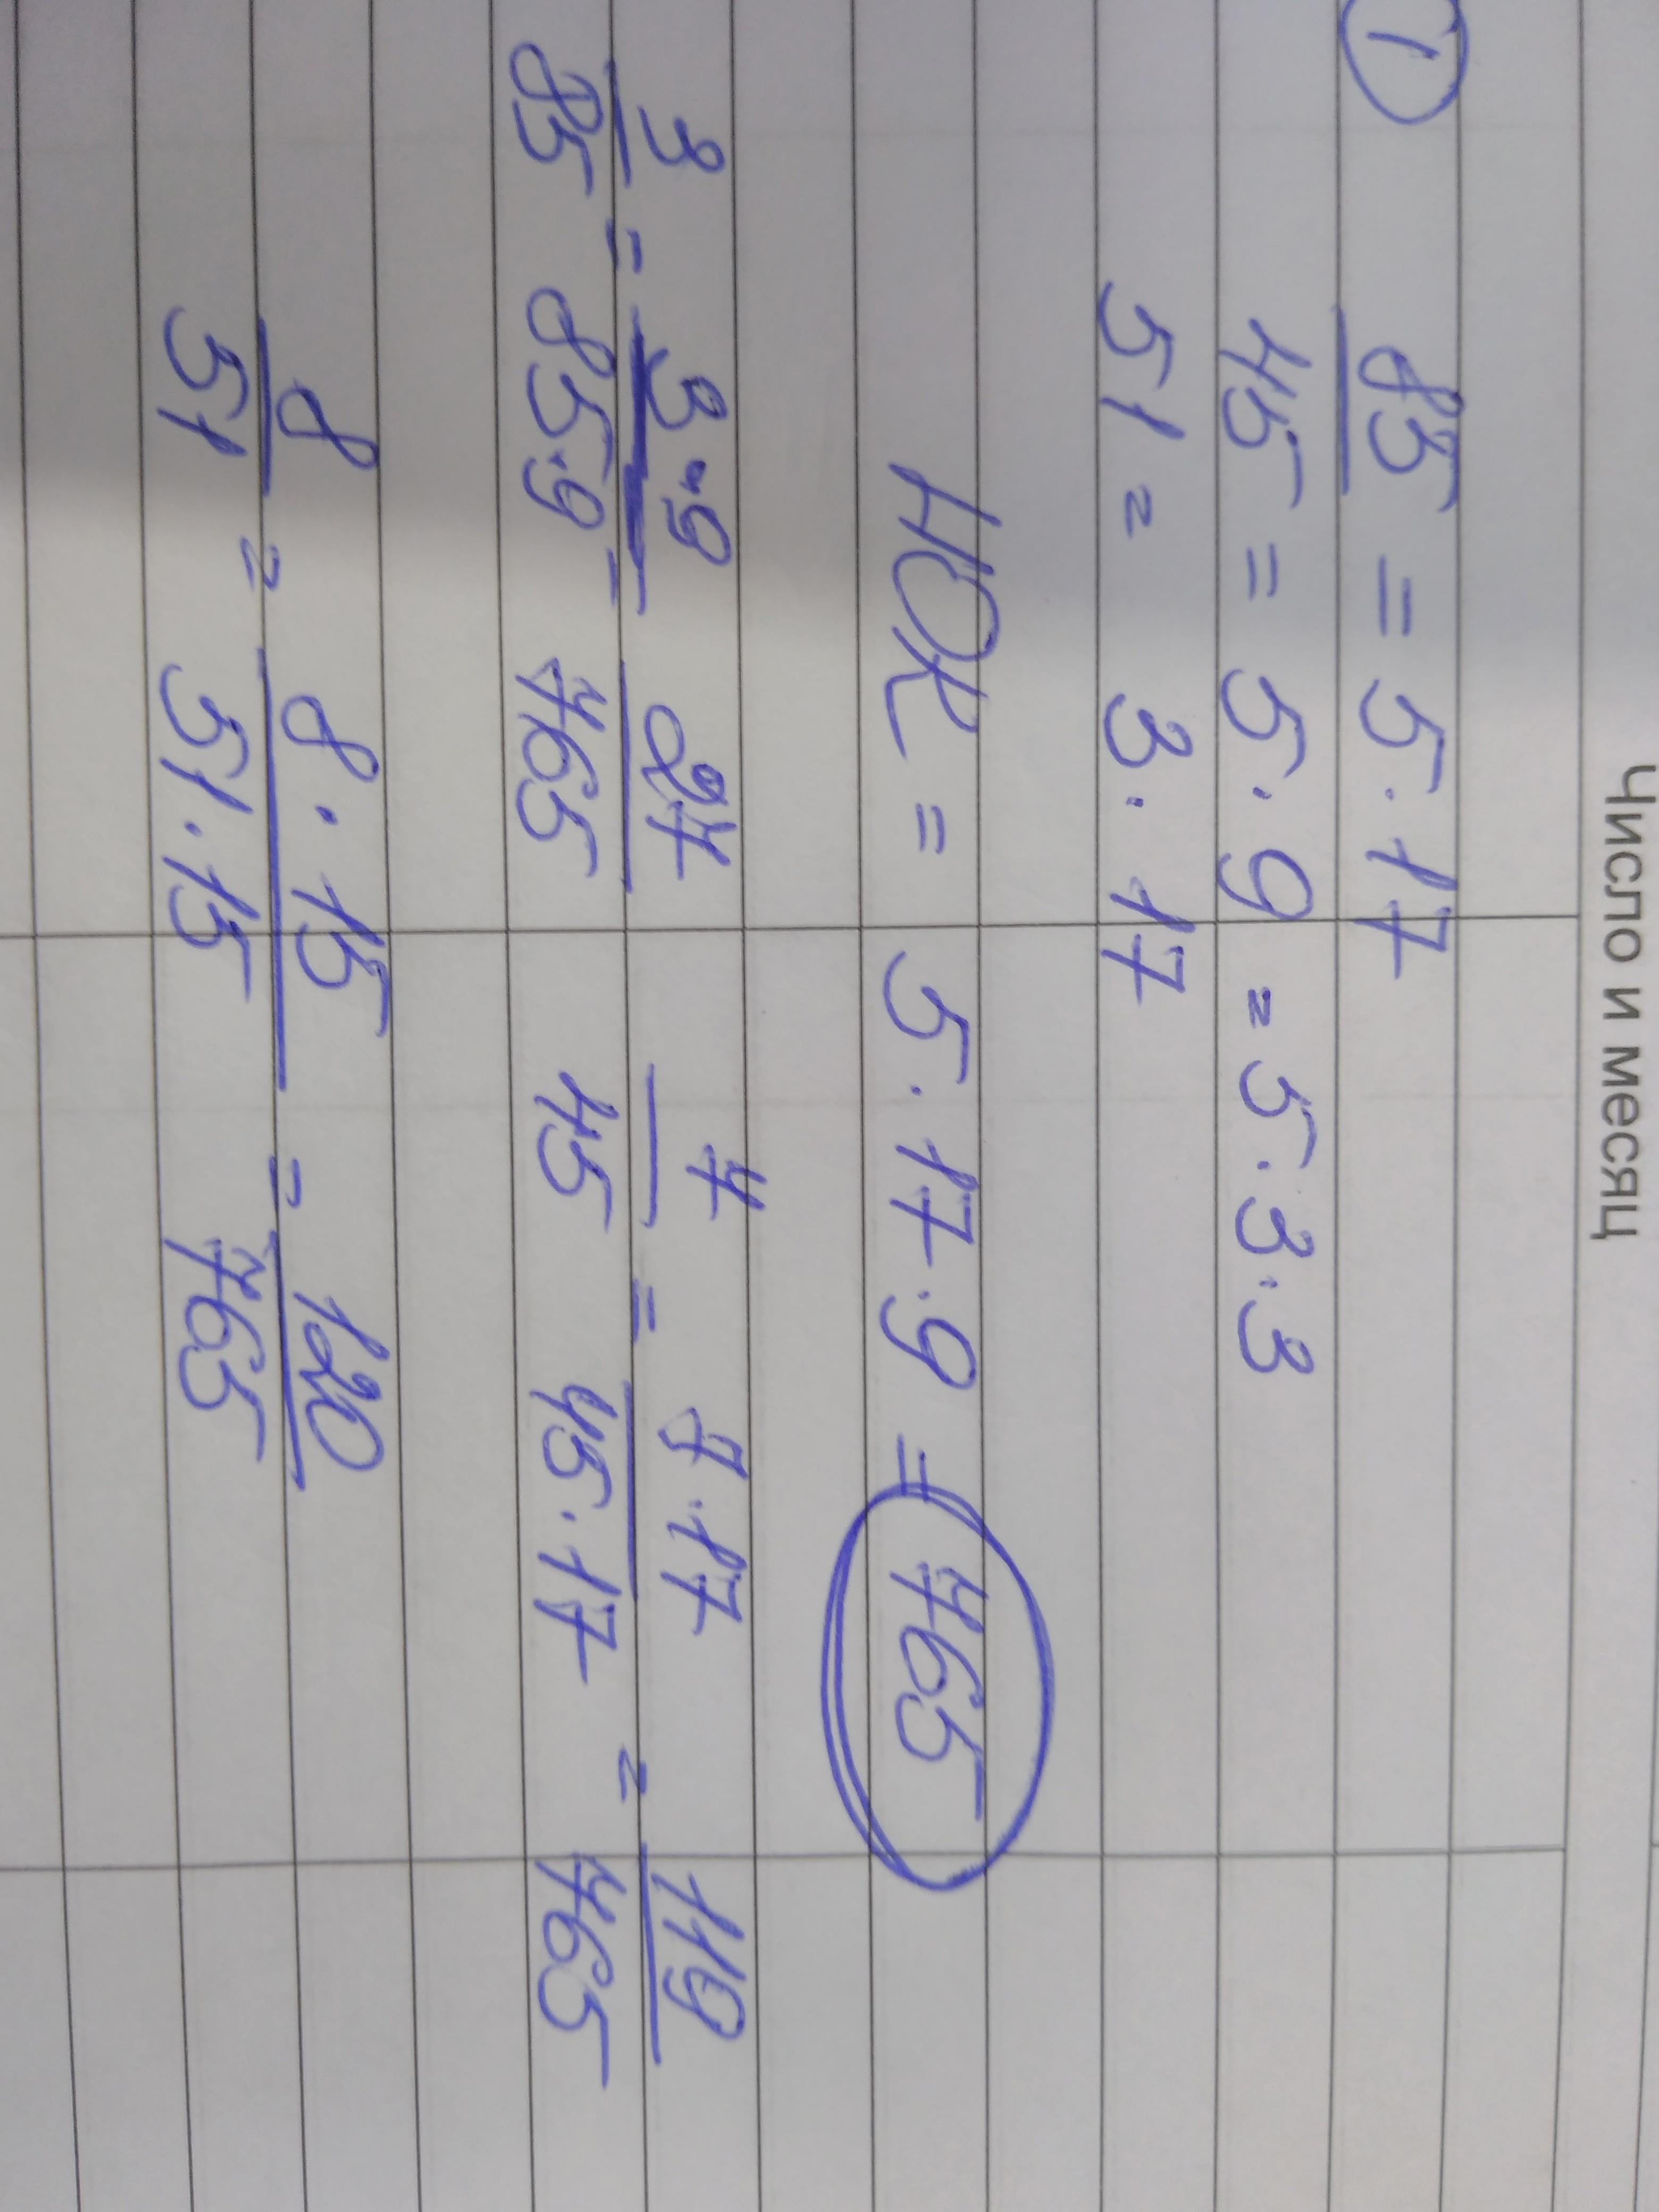 Число и месяц
① 85 = 5·17
45 = 5·9 = 5·3·3
51 = 3·17
НОК = 5·17·9 = 765
3/85 = 3·9/85·9 = 27/765 7/45 = 7·17/45·17 = 119/765
8/51 = 8·15/51·15 = 120/765